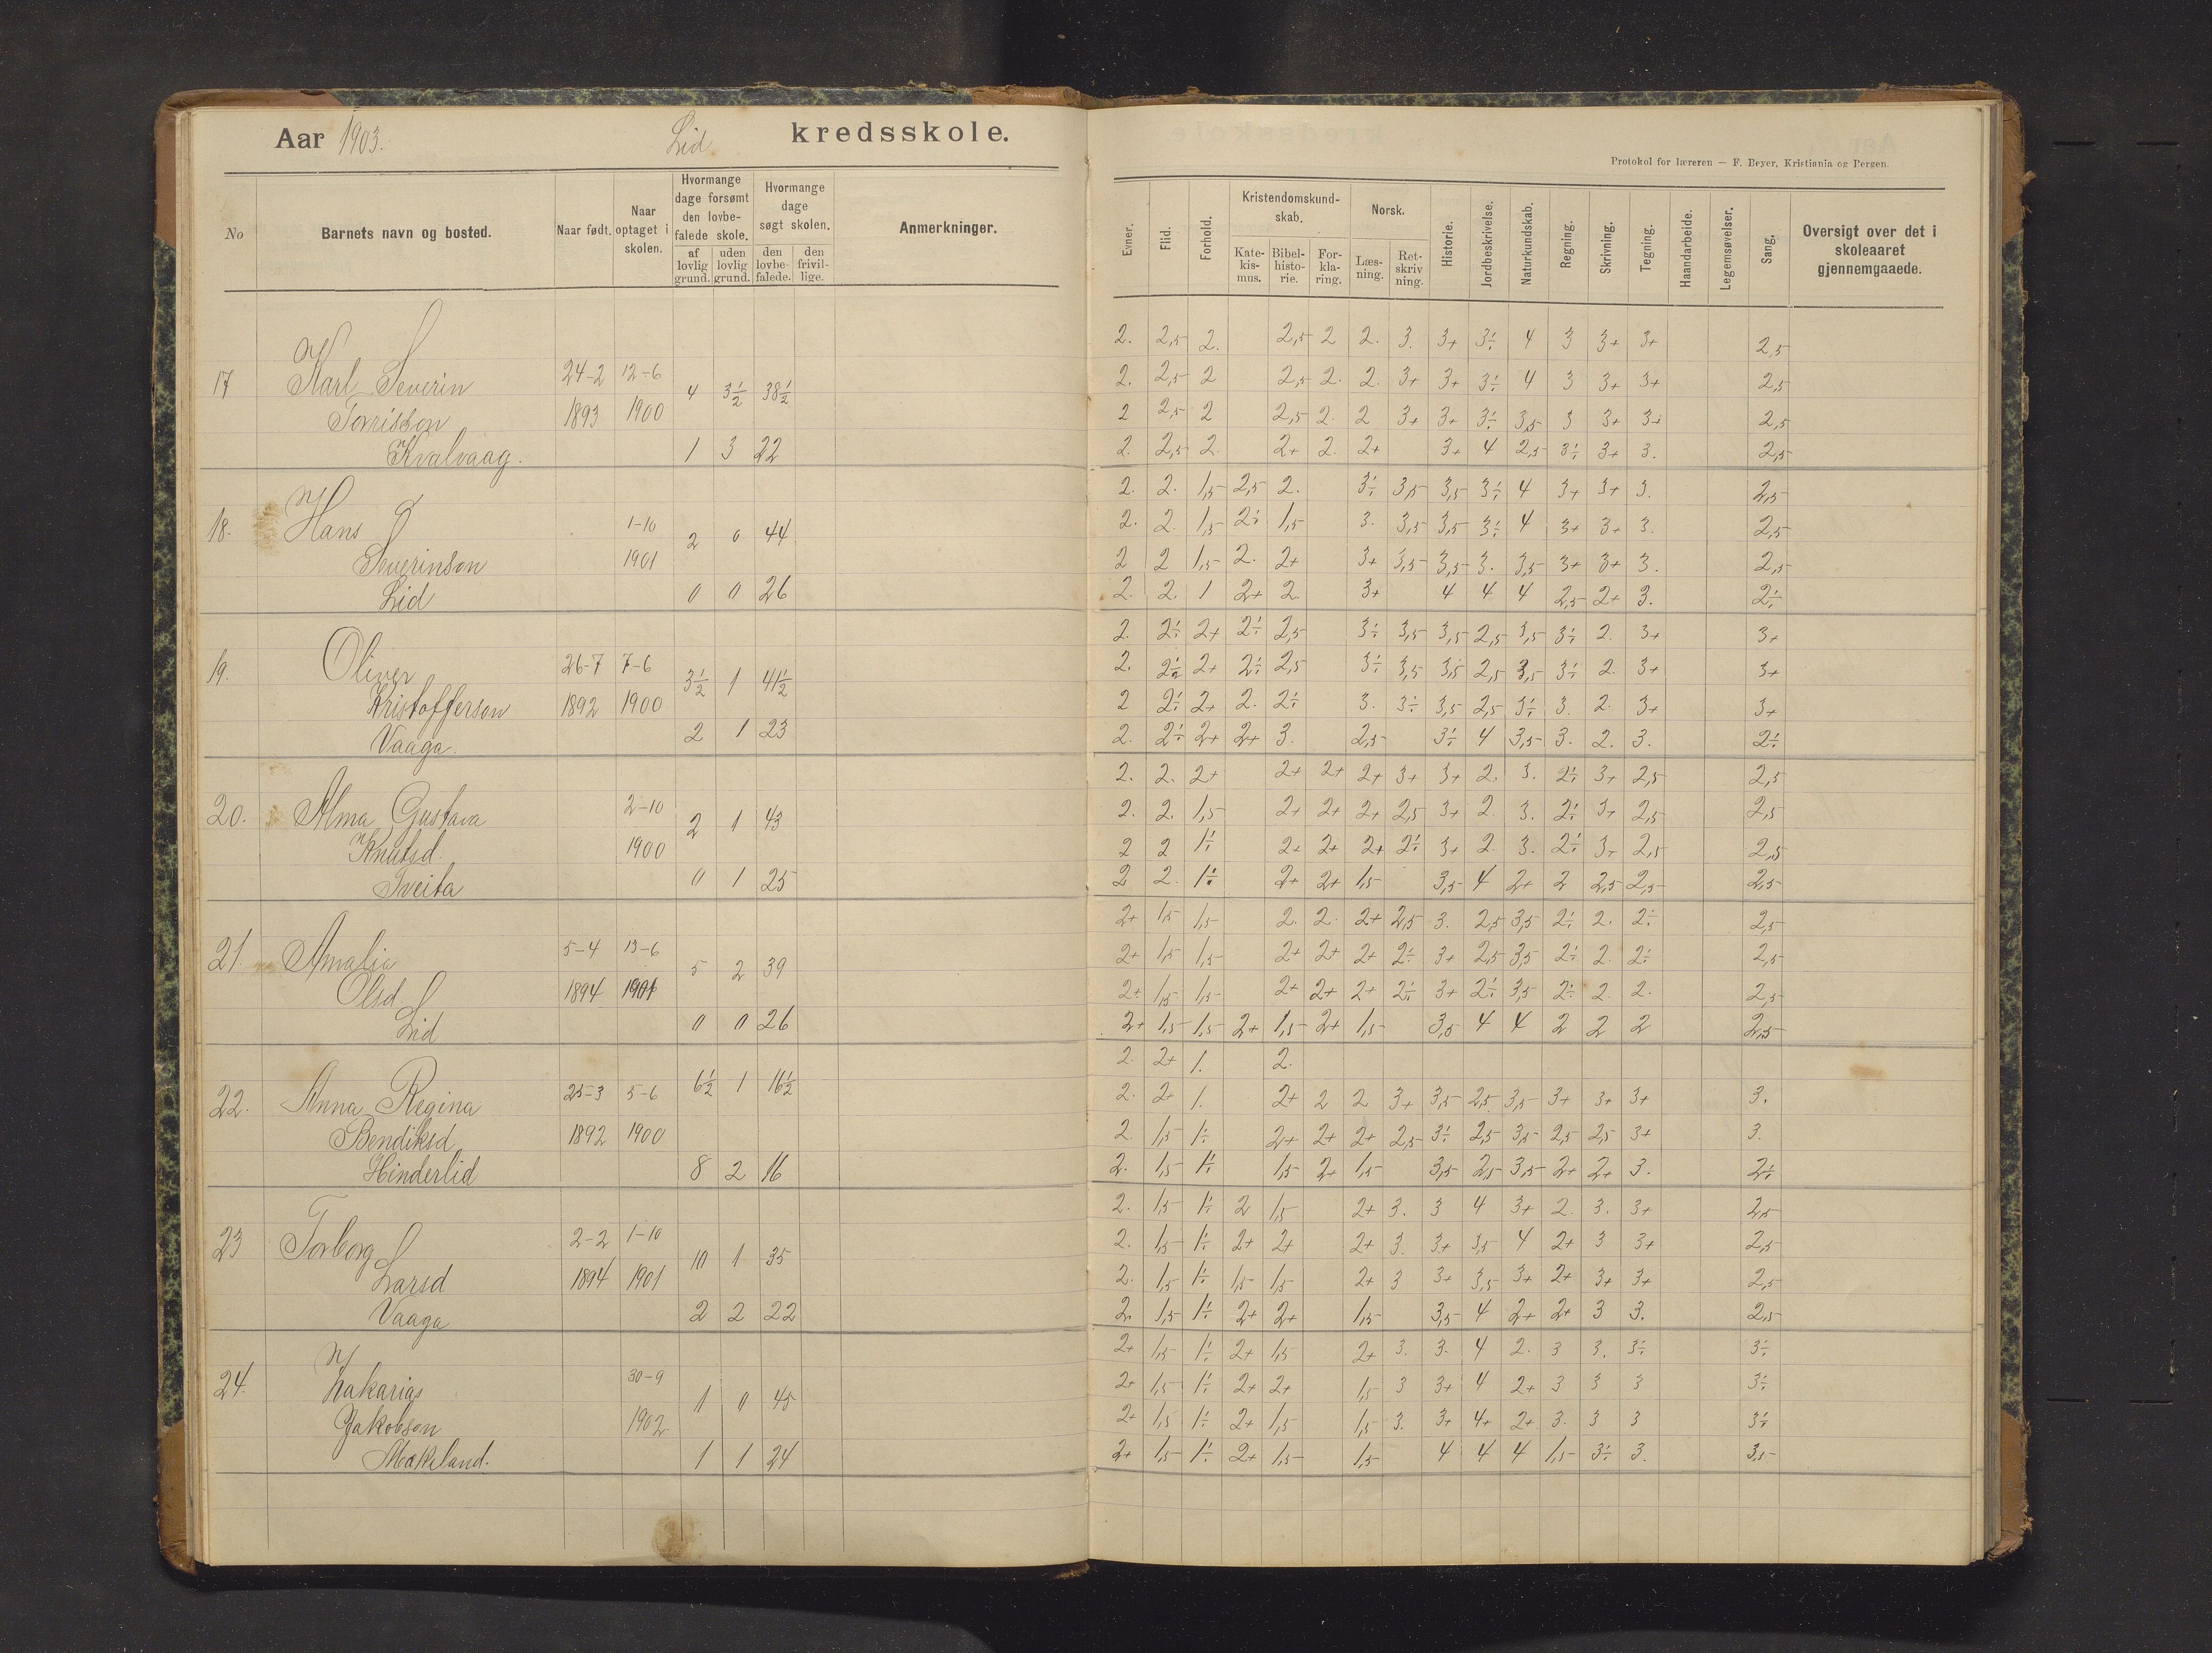 Aar 1903. Lid kredsskole.
Protokol for læreren — F. Beyer, Kristiania og Bergen.
No
Barnets navn og bosted.
Naar født.
Naar optaget i skolen.
Hvormange dage forsømt den lovbefalede skole.
af lovlig grund.
uden lovlig grund.
Hvormange dage søgt skolen.
den lovbefalede.
den frivillige.
Anmerkninger.
Evner.
Flid.
Forhold.
Kristendomskundskab.
Katekismus.
Bibelhistorie.
Forklaring.
Norsk.
Læsning.
Retskrivning.
Historie.
Jordbeskrivelse.
Naturkundskab.
Regning.
Skrivning.
Tegning.
Haandarbeide.
Legemsøvelser.
Sang.
Oversigt over det i skoleaaret gjennemgaaede.
2. 2,5 2. 2,5 2 2. 3. 3+ 3÷ 4 3 3+ 3+ 2,5
17 Karl Severin 24-2 12-6 4 3½ 38½ 2. 2,5 2 2,5 2. 2. 3+ 3+ 3÷ 4 3 3+ 3+ 2,5
Torrisson 1893 1900 2 2,5 2 2,5 2. 2 3+ 3+ 3÷ 3,5 3 3+ 3+ 2,5
Kvalvaag. 1 3 22 2. 2,5 2. 2+ 2. 2+ 3+ 4 2,5 3÷ 3+ 3. 2,5
2. 2. 1,5 2,5 2. 3÷ 3,5 3,5 3÷ 4 3+ 3+ 3. 2,5
18. Hans 1-10 2 0 44 2. 2. 1,5 2÷ 1,5 3. 3,5 3,5 3÷ 4 3+ 3+ 3. 2,5
Severinson 1901 2 2 1,5 2. 2+ 3+ 3,5 3,5 3. 3,5 3+ 3+ 3. 2,5
Lid 0 0 26 2. 2. 1 2+ 2. 3+ 4 4 4 2,5 2+ 3. 2÷
2. 2÷ 2+ 2÷ 2,5 3÷ 3,5 3,5 2,5 3,5 3÷ 2. 3+ 3+
19. Oliver 26-7 7-6 3½ 1 41½ 2. 2÷ 2+ 2÷ 2,5 3÷ 3,5 3,5 2,5 3,5 3÷ 2. 3+ 3+
Kristofferson 1892 1900 2 2÷ 2+ 2. 2÷ 3. 3÷ 3,5 2,5 3÷ 3. 2. 3+ 3+
Vaaga. 2 1 23 2. 2÷ 2+ 2+ 3. 2,5 3÷ 4 3,5 3. 2. 3. 2÷
2. 2. 2+ 2+ 2+ 2+ 3+ 3+ 2. 3. 2÷ 3+ 2,5 2,5
20. Alma Gustava 2-10 2 1 43 2. 2. 1,5 2+ 2+ 2+ 2,5 3+ 2. 3. 2÷ 3+ 2,5 2,5
Knutsd. 1900 2 2 1÷ 2+ 2+ 2+ 2÷ 3+ 2. 3. 2÷ 3+ 2,5 2,5
Tveita 0 1 25 2 2. 1÷ 2+ 2+ 1,5 3,5 4 2+ 2 2,5 2,5 2,5
2+ 1,5 1,5 2. 2. 2+ 2,5 3. 2,5 3,5 2÷ 2. 2÷ 2,5
21. Amalia 5-4 13-6 5 2 39 2+ 1,5 1,5 2+ 2+ 2+ 2÷ 3+ 2,5 3,5 2÷ 2. 2÷ 2,5
Olsd 1894 1901 2+ 1,5 1,5 2+ 2+ 2+ 2÷ 3+ 2÷ 3,5 2÷ 2. 2. 2,5
Lid 0 0 26 2+ 1,5 1,5 2+ 1,5 2+ 1,5 3,5 4 4 2 2 2 2,5
2. 2+ 1. 2.
22. Anna Regina 25-3 5-6 6½ 1 16½ 2. 2+ 1. 2+ 2 2 3+ 3,5 2,5 3,5 3+ 3+ 3+ 3.
Bendiksd 1892 1900 2. 1,5 1÷ 2+ 2+ 2+ 2,5 3÷ 2,5 3,5 2,5 2,5 3+ 3.
Hinderlid 8 2 16 2. 1,5 1÷ 1,5 2+ 1,5 3,5 2,5 3,5 2+ 2+ 3. 2÷
2. 1,5 1÷ 2 1,5 2+ 3. 3 4 3+ 2. 3. 3+ 2,5
23 Torborg 2-2 1-10 10 1 35 2. 1,5 1÷ 2+ 2+ 2+ 3. 3+ 3,5 4 2+ 3 3+ 2,5
Larsd 1894 1901 2. 1,5 1÷ 1,5 1,5 2+ 3 3+ 3,5 3+ 2+ 3+ 3+ 2,5
Vaaga 2 2 22 2. 1,5 1÷ 2+ 2+ 1,5 3,5 4 2+ 2+ 3 3. 2,5
2+ 1,5 1÷ 2+ 1,5 2+ 3. 3. 4 2. 3 3. 3÷ 3÷
24. Zakarias 30-9 1 0 45 2+ 1,5 1÷ 2+ 2+ 1,5 3 3+ 4 2+ 3 3 3 3÷
Jakobson 1902 2+ 1,5 1÷ 2+ 1,5 1,5 3. 3+ 4+ 2+ 3. 3 3 3÷
Mækeland. 1 1 24 2+ 1,5 1÷ 2+ 1,5 1,5 4 4 4 1,5 3÷ 3. 3,5